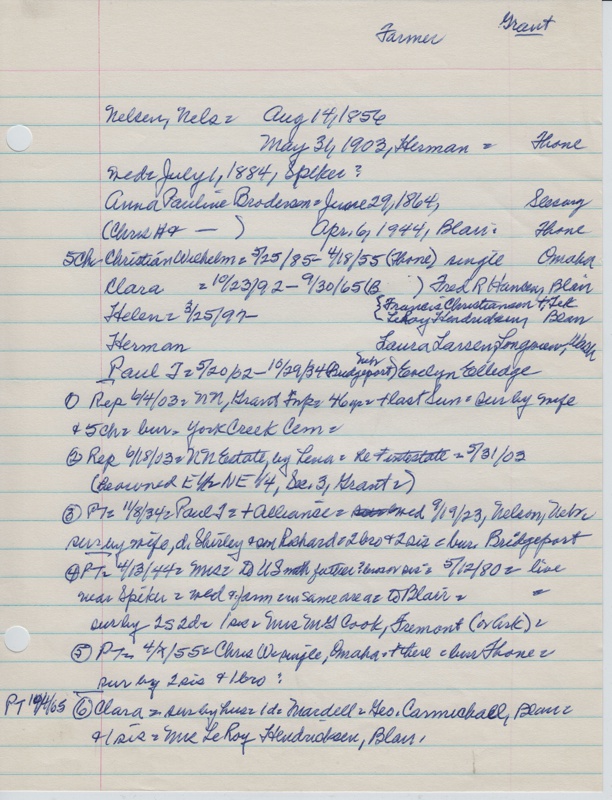 Farmer Grant
Nelsen, Nels = Aug 14, 1856
May 31, 1903, Herman = Fhone
wed = July 1, 1884, Spiker?
Anna Pauline Brodersen = June 29, 1864,
(Chris H & — ) Apr. 6, 1944, Blair = Fhone
5ch - Christian Wilhelm = 5/25/85 - 4/18/55 (Fhone) single Omaha
Clara = 10/23/92 - 9/30/65 (B ) Fred R Hansen, Blair
Helen = 3/25/97 - {Francis Christiansen +, Tek
{LeRoy Hendricksen, Blair
Herman Laura Larsen, Longview, Wash
Paul J = 5/20/02 - 10/29/34 (Bridgeport) Nebr Evelyn Elledge
① Rep 6/4/03 = NN, Grant Twp = 46yr = + last Sun = sur by wife
& 5ch = bur = York Creek Cem =
② Rep 6/18/03 = NN Estate, by Lena = Re + intestate = 5/31/03
(Be owned E 1/2 NE 1/4, Sec. 3, Grant =)
③ PT = 11/8/34 = Paul J = + Alliance = wed 9/19/23, Nelson, Nebr
sur by wife, d. Shirley & son Richard = 2bro & 2sis = bur. Bridgeport
④ PT = 4/13/44 = Mrs = To US = 5/12/80 = live
near Spiker = wed & farm in same area = to Blair =
sur by 2s 2d = 1sis = Mrs MG Cook, Fremont (or Ark) =
⑤ PT = 4/ /55 = Chris W single, Omaha + there = bur Fhone =
sur by 2sis & 1bro ?
PT 10/4/65 ⑥ Clara = sur by hus = 1d = Mardell = Geo. Carmichael, Blair =
& 1sis = Mrs LeRoy Hendricksen, Blair.